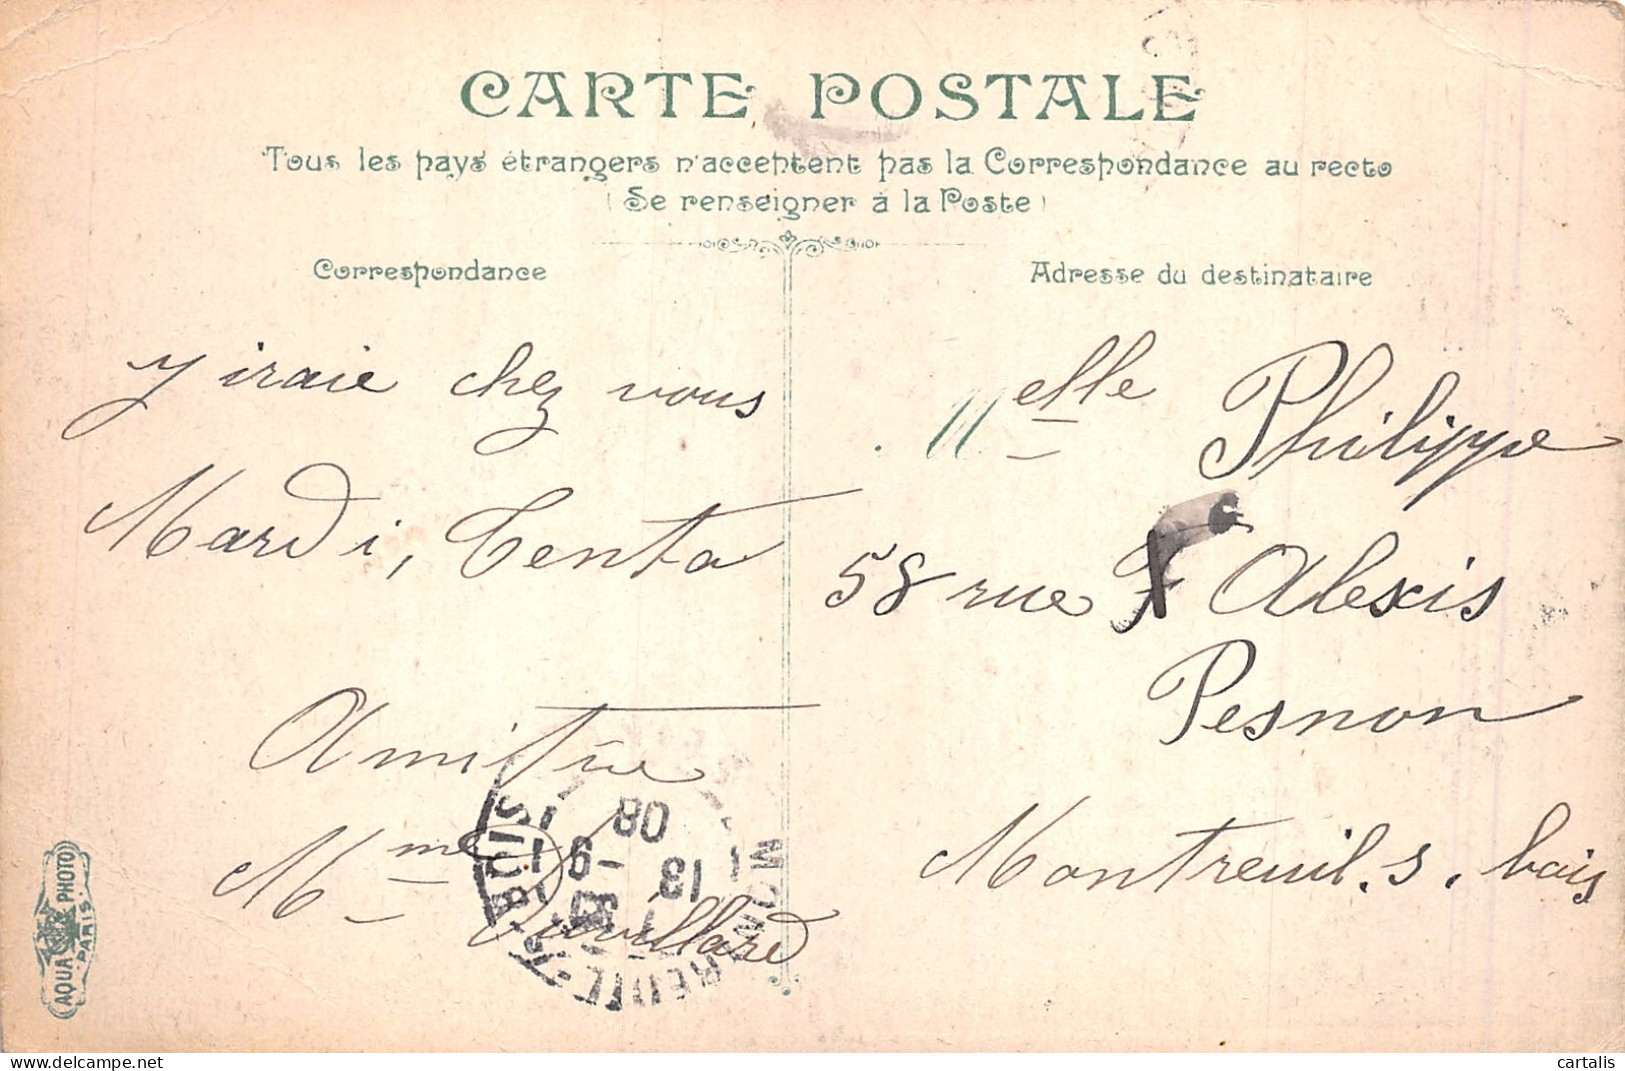 CARTE POSTALE
Tous les pays étrangers n'acceptent pas la Correspondance au recto
(Se renseigner à la Poste)
Correspondance
Adresse du destinataire
J'iraie chez vous
Mardi, Centa
Amitie
Mme Duvillard
Melle Philippe
58 rue Alexis
Pesnon
Montreuil. s. bois
MONTREUIL-S-BOIS
13
08
AQUA PHOTO
PARIS
cartalis